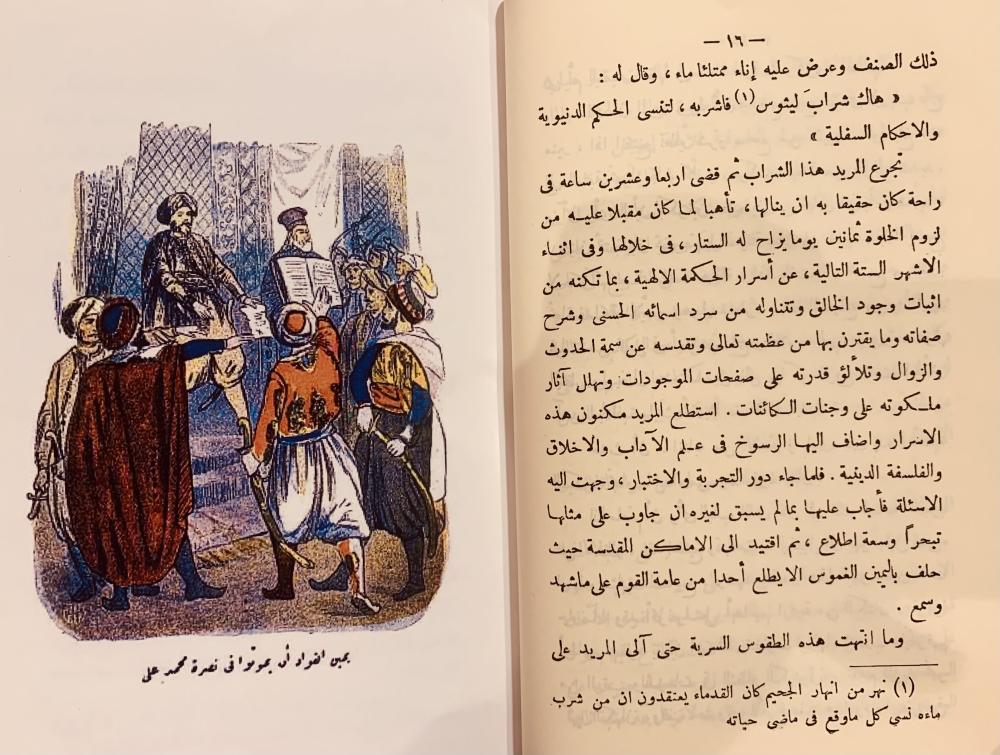 — ١٦ —
ذلك الصنف وعرض عليه إناء ممتلئا ماء ، وقال له :
« هاك شرابَ ليثوس (١) فاشربه ، لتنسى الحكم الدنيوية
والاحكام السفلية »
تجرع المريد هذا الشراب ثم قضى اربعا وعشرين ساعة فى
راحة كان حقيقا به ان ينالها ، تأهبا لما كان مقبلا عليه من
لزوم الخلوة ثمانين يوما يزاح له الستار ، فى خلالها وفى اثناء
الاشهر الستة التالية ، عن أسرار الحكمة الالهية ، بما تكنه من
اثبات وجود الخالق وتتناوله من سرد اسمائه الحسنى وشرح
صفاته وما يقترن بها من عظمته تعالى وتقدسه عن سمة الحدوث
والزوال وتلألؤ قدرته على صفحات الموجودات وتهلل آثار
ملكوته على وجنات الكائنات . استطلع المريد مكنون هذه
الاسرار واضاف اليها الرسوخ فى علم الآداب والاخلاق
والفلسفة الدينية . فلما جاء دور التجربة والاختبار ، وجهت اليه
الاسئلة فأجاب عليها بما لم يسبق لغيره ان جاوب على مثلها
تبحراً وسعة اطلاع ، ثم اقتيد الى الاماكن المقدسة حيث
حلف باليمين الغموس الا يطلع أحدا من عامة القوم على ماشهد
وسمع .
وما انتهت هذه الطقوس السرية حتى آلى المريد على
(١) نهر من انهار الجحيم كان القدماء يعتقدون ان من شرب
ماءه نسى كل ماوقع فى ماضى حياته
يمين القواد أن يموتوا فى نصرة محمد على